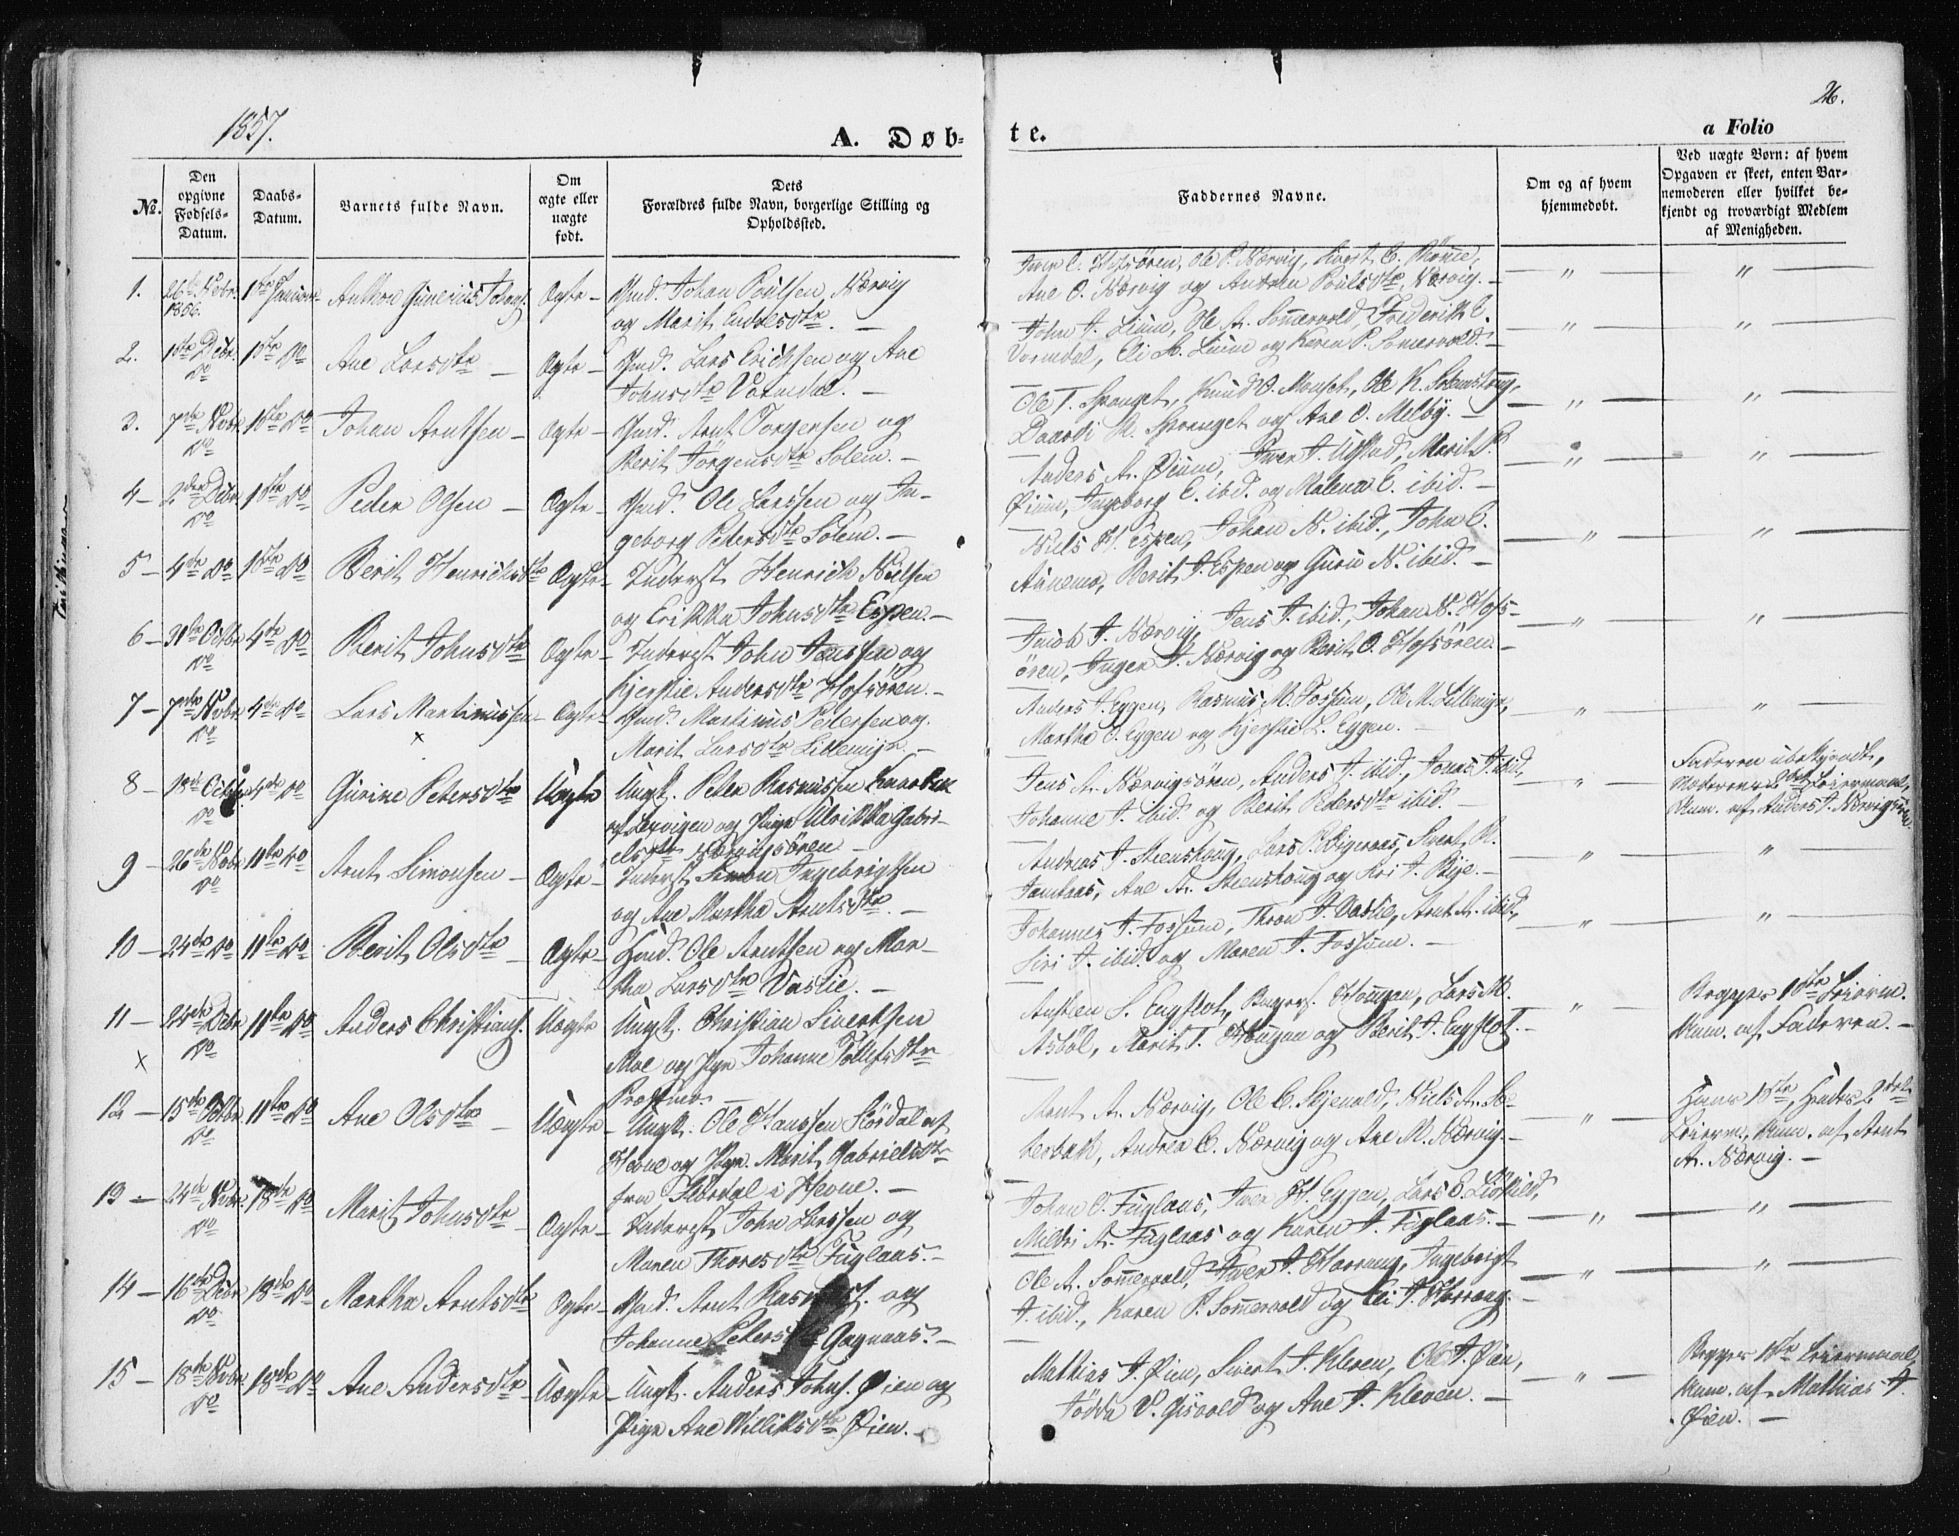 1857.
26.
A. Døb-
te.
a Folio
No.
Den opgivne Fødsels-Datum.
Daabs-Datum.
Barnets fulde Navn.
Om ægte eller uægte født.
Dets Forældres fulde Navn, borgerlige Stilling og Opholdssted.
Faddernes Navne.
Om og af hvem hjemmedøbt.
Ved uægte Børn: af hvem
Opgaven er skeet, enten Bar-
nemoderen eller hvilket be-
kjendt og troværdigt Medlem
af Menigheden.
1. 26de Novbr. 1856. 1ste Januar Anthon Gunerius Johans. Ægte - Gmd. Johan Poulsen Nærvig
og Marit Endresdtr. -
Iver C. Hofsören, Ole P. Nærvig, Sivert C.
Ane O. Nærvig og Andrea Poulsdtr Nærvig. - " "
2. 1ste Decbr. Do 1ste Do Ane Larsdtr - Ægte - Gmd. Lars Erichsen og Ane
Johnsdtr Vormdal. -
John J. Lium, Ole A. Sommervold, Frederik E.
Vormdal, Eli Lium og Karen P. Somervold. - " "
3. 7de Novbr. Do 1ste Do Johan Arntsen - Ægte - Gmd. Arnt Torgersen og
Berit Jörgensdtr Solem. -
Ole T. Sponget, Knud O. Monset, Ole K. Solemseng,
Daardi M. Sponget og Ane O. Melby. - " "
4 - 2den Decbr. Do 1ste Do Peder Olsen - Ægte - Gmd. Ole Larssen og In-
geborg Petersdtr Solem. -
Anders A. Öium, Iver J. Ustad, Marit P.
Öium, Ingeborg E. ibid. og Malena E. ibid. - " "
5 - 4de Do 1ste Do Berit Henrichsdtr Ægte - Inderst Henrich Nielsen
og Erikka Johnsdtr Espen. -
Niels H. Espen, Johan N. ibid., John E.
Aunemo, Berit J. Espen og Guru N. ibid. - " "
6 - 31te Octbr. Do 4de Do Berit Johnsdtr Ægte - Inderst John Jenssen og
Kjerstie Andersdtr Hofsören. -
Jacob J. Nærvig, Jens J. ibid., Johan N. Hofs-
ören, Inger J. Nærvig og Berit O. Hofsören. - " "
7 - 7de Novbr. Do 4de Do Lars Martinussen - Ægte - Gmd. Martinus Pedersen og
x
Marit Larsdtr Lillemyr. -
Anders J. Eggen, Rasmus M. Fossum, Ole M. Lillemyr,
Martha O. Eggen og Kjerstie L. Eggen. - " "
8 - 18de Octbr. Do 4de Do Gurine Petersdtr Uægte Ungk. Peter Rasmussen
af Lexvigen og Pige Ulrikka Gabri-
elsdtr Nærvigsören -
Jens A. Nærvigsören, Anders J. ibid., Jonas J. ibid,
Johanne J. ibid. og Berit Petersdtr ibid. - "
Faderen ubekjendt,
Moderens 2det Leiermaal,
Anm. af Anders J. Nærvigsören
9 - 26de Novbr. Do 11te Do Arnt Simonsen - Ægte - Inderst Simon Ingebrigtsen
og Ane Martha Arntsdtr. -
Andreas J. Steenshoug, Lars P. Vigeraas, Sivert R.
Jamtaas, Ane A. Steenshoug og Siri J. Rye. - " "
10 - 24de Do 11te Do Berit Olsdtr - Ægte - Husmd. Ole Arntsen og Mar-
tha Larsdtr Vaslie. -
Johannes J. Fossum, Thron J. Vaslie, Arnt A. ibid,
Siri J. ibid. og Maren J. Fossum. - " "
11 - 24de Decbr. Do 11te Do Anders Christians. Uægte Ungk. Christian Sivertsen
x
Moe og Pige Johanne Tollefsdtr
Austen S. Engflot, Hougan, Lars M.
Asböl, Marit T. Hougan og Berit J. Engflot. - "
Begges 1ste Leierm.
Anm. af Faderen. -
12 - 15de Octbr. Do 11te Do Ane Olsdtr - Uægte - Ungk. Ole Hanssen Stördal af
Hevne og Pige Marit Gabrielsdtr
fra Stördal i Hevne. -
Arnt A. Nærvig, Ole C. Skjenald, Niels A. Se-
terbak, Andrea C. Nærvig og Ane M. Nærvig. - "
Hans 1ste, Hendes 2det
Leierm. Anm. af Arnt
A. Nærvig. -
13 - 24de Novbr. Do 18de Do Marit Johnsdtr - Ægte - Inderst John Larssen og
Maren Thoresdtr Fuglaas. -
Johan O. Fuglaas, Iver H. Eggen, Lars E.
Mildri A. Fuglaas og Karen A. Fuglaas. - " "
14 - 16de Decbr. Do 18de Do Martha Arntsdtr Ægte - Gmd. Arnt Rasmuss. og
Johanne Petersdtr Gagnaas. -
Ole A. Sommervold, Iver J. Horrong, Ingebrigt
J. ibid., Karen P. Sommervold og Eli J. Horrong. - " "
15 - 18de Novbr. Do 18de Do Ane Andersdtr Uægte - Ungk. Anders Johns. Öien og
Pige Ane Williksdtr Öien. -
Mathias J. Öien, Sivert J. Kleven, Ole J. Öien,
Jödda V. Gisvold og Ane J. Kleven. - "
Begges 1ste Leiermaal,
Anm. af Mathias J.
Öien. -